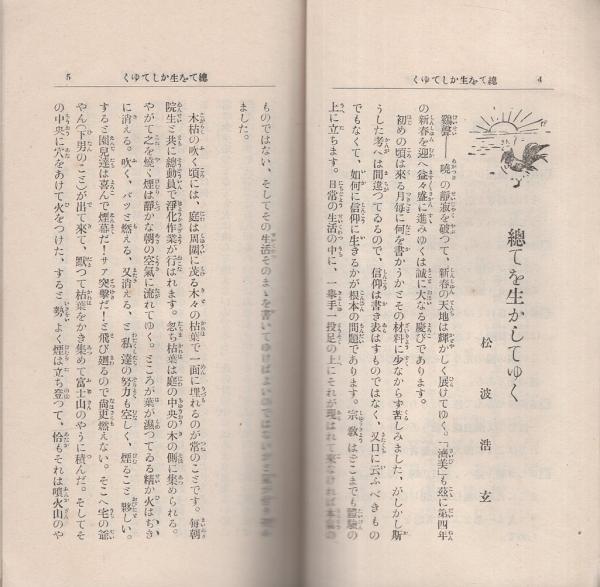 總てを生かしてゆく
4
總てを生かしてゆく
松波浩玄
鷄聲――曉の靜寂を破つて、新春の天地は輝かしく展けてゆく。「濟美」も玆に第四年
の新春を迎へ益々盛に進みゆくは誠に大なる慶びであります。
初めの頃は來る月每に何を書かうかとその材料に少なからず苦しみました、がしかし斯
うした考へは間違つてゐるので、信仰は書き表はすものではなく、又口に云ふべきもの
でもなくて、如何に信仰に生きるかが根本の問題であります。宗敎はどこまでも體驗の
上に立ちます。日常の生活の中に、一擧手一投足の上にそれが現はれて來なければ
總てを生かしてゆく
5
ものではない、そしてその生活そのまゝを書いてゆけばよいのではないかと
ました。
木枯の吹く頃には、庭は周圍に茂る木々の枯葉で一面に埋れるのが常のことです。每朝
院生と共に總動員で淨化作業が行はれます。忽ち枯葉は庭の中央の木の側に集められる。
やがて之を燒く煙は靜かな朝の空氣に流れてゆく。ところが葉が濕つてゐる精か火はぢき
に消える。吹く、パッと燃える、又消える、と私達の努力も空しく、煙ること夥しい。
すると園兒達は喜んで煙幕だ！サァ突擊だ！と飛び廻るので尙更燃えない。そこへ宅の爺
やん（下男のこと）が出て來て、默つて枯葉をかき集めて富士山のやうに積んだ。そしてそ
の中央に穴をあけて火をつけた、すると勢よく煙は立ち登つて、恰もそれは噴火山のや